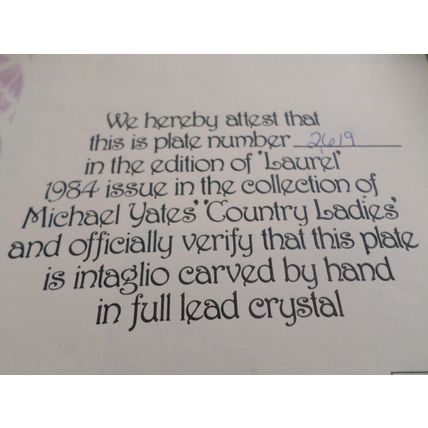 We hereby attest that
this is plate number 2619
in the edition of 'Laurel'
1984 issue in the collection of
Michael Yates' 'Country Ladies'
and officially verify that this plate
is intaglio carved by hand
in full lead crystal